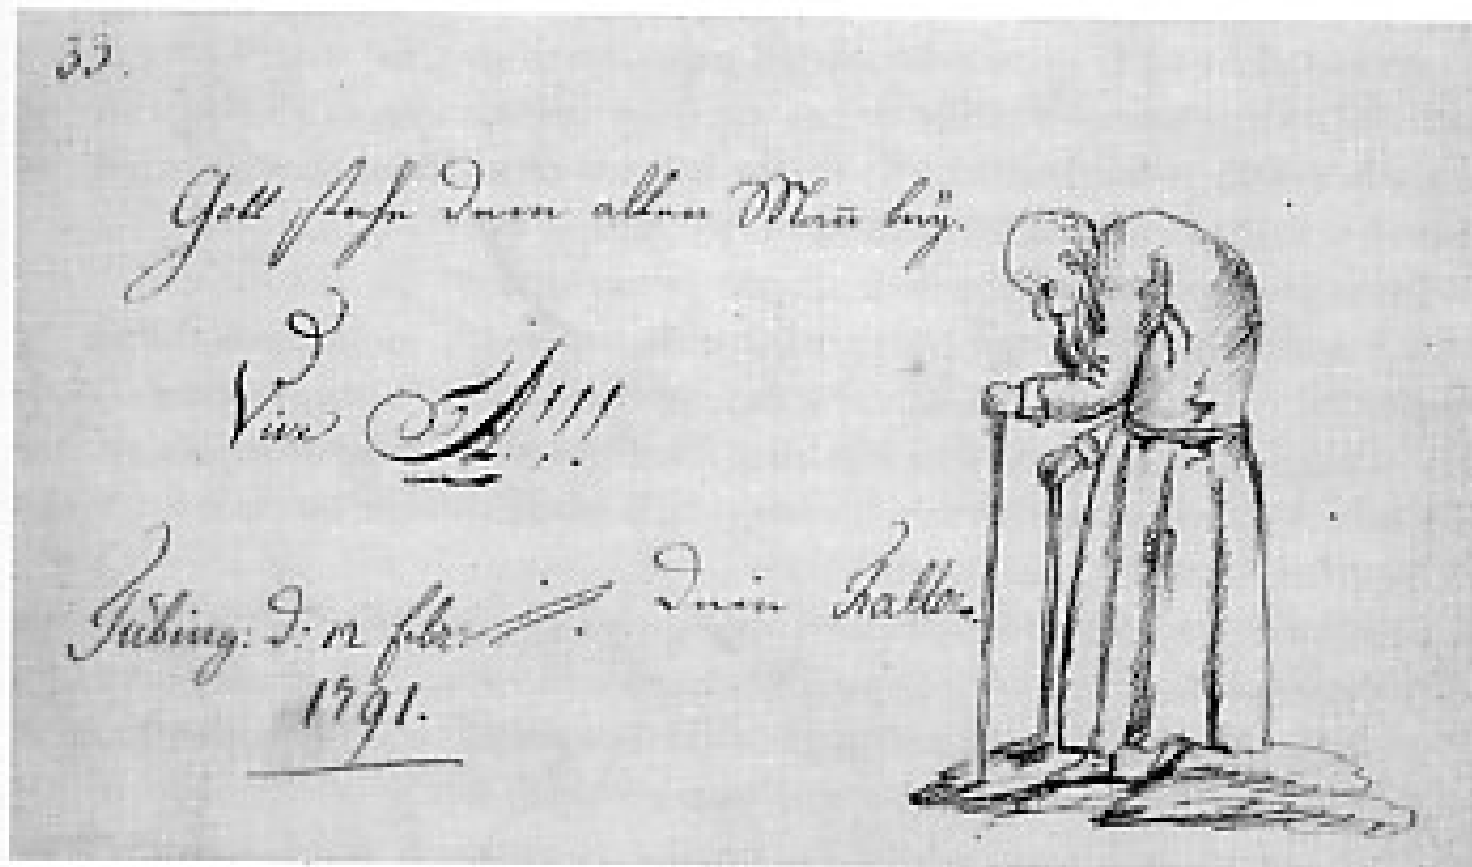 33.
Gott stehe dem alten Mañ beÿ.
Vive A!!!
Tübing: d: 12 febr: Dein Fallot.
1791.